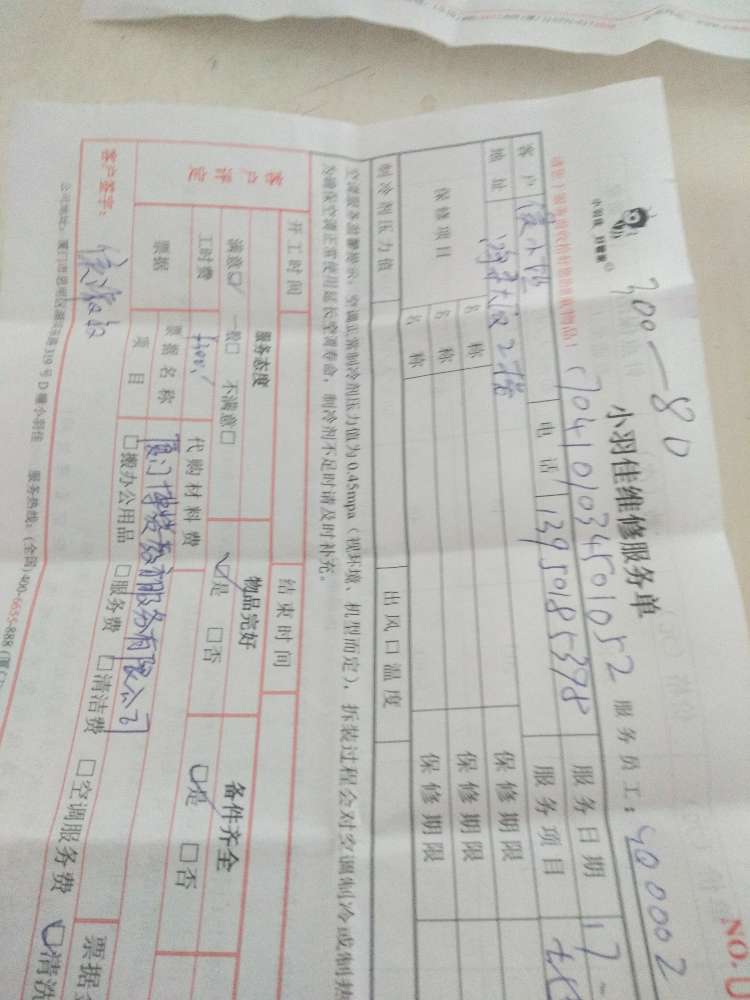 300—80
NO.U
小羽佳 好管家
小羽佳维修服务单
1704101034501052
服务员工：400002
客户
电话 13950185398
服务日期 17-
地址
2楼
服务项目
保修项目
名称
保修期限
名称
保修期限
名称
保修期限
制冷剂压力值
出风口温度
空调服务温馨提示：空调正常制冷剂压力值为0.45mpa（视环境、机型而定），拆装过程会对空调制冷或制热
为确保空调正常使用延长空调寿命，制冷剂不足时请及时补充。
开工时间
结束时间
客户评定
服务态度
物品完好
备件齐全
满意☑ 一般□ 不满意□
☑是 □否
☑是 □否
工时费
代购材料费
票据
票据名称
服务有限公司
项目
□搬办公用品 □服务费 □清洁费 □空调服务费 ☑清洗
票据
客户签字：
公司地址：厦门市思明区
319号D幢小羽佳 服务热线：(全国)400-6655-888